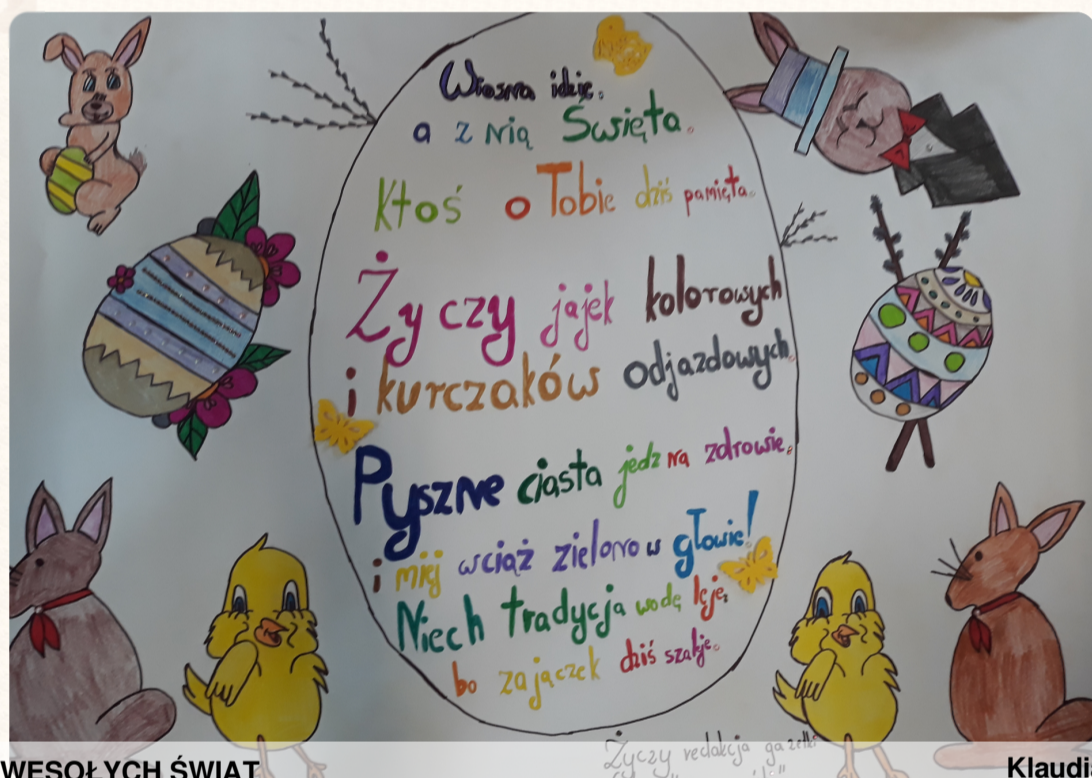 Wiosna idzie.
a z nią Święta.
Ktoś o Tobie dziś pamięta.
Życzy jajek kolorowych
i kurczaków odjazdowych.
Pyszne ciasta jedz na zdrowie.
i miej wciąż zielono w głowie!
Niech tradycja wodę leje,
bo zajączek dziś szaleje.
Życzy redakcja gazetki
WESOŁYCH ŚWIĄT
Klaudi